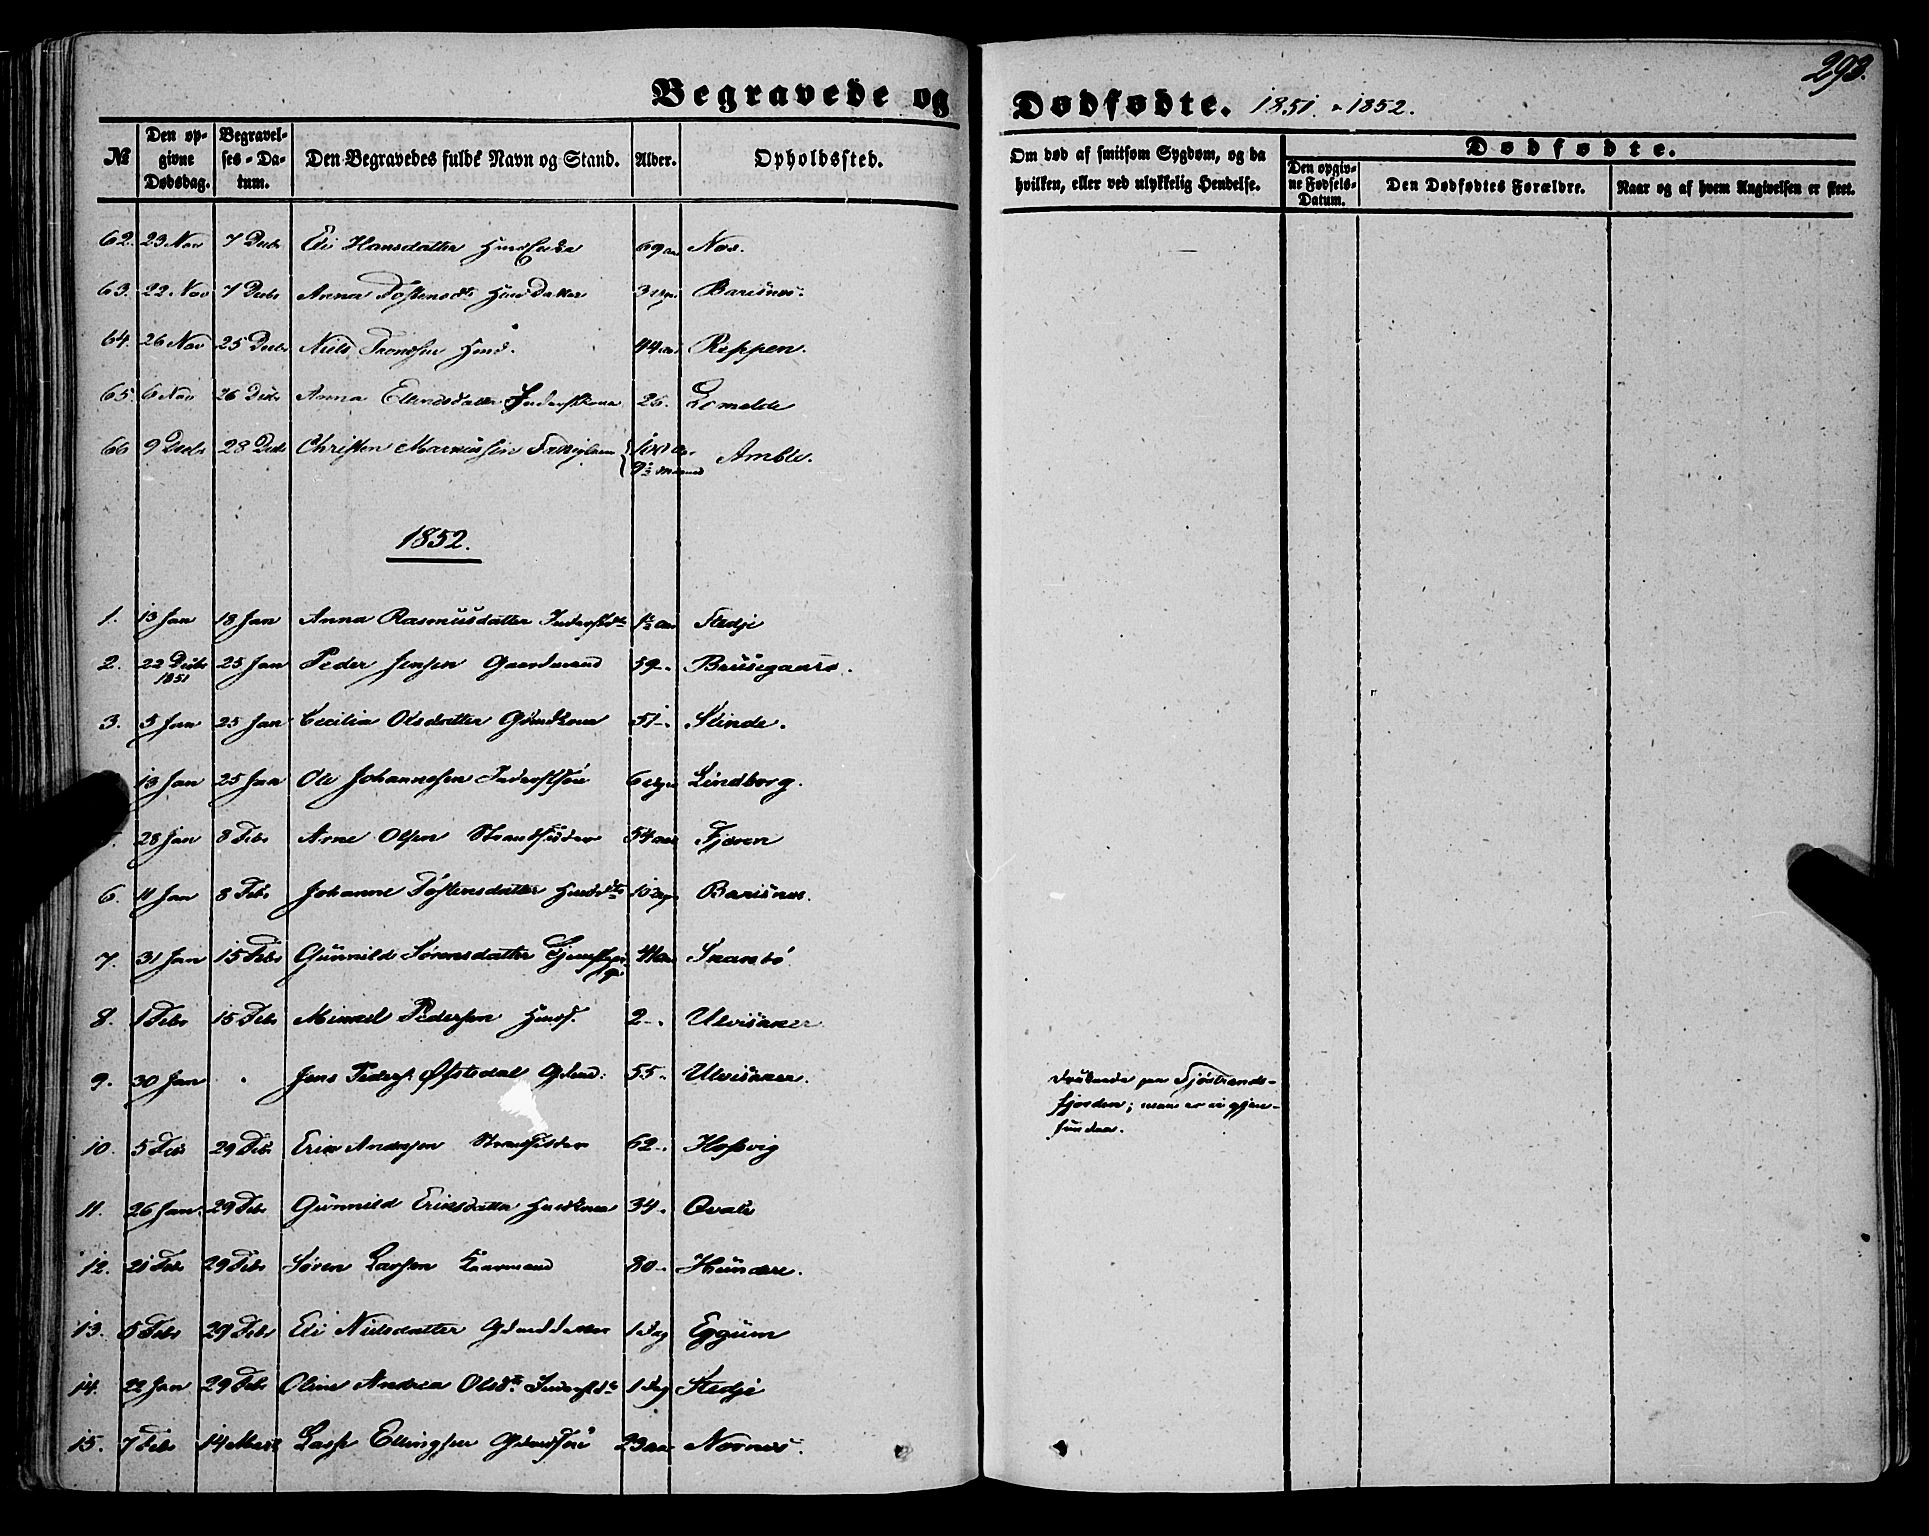 293.
Begravede og Dødfødte. 1851. 1852.
№ Den opgivne Dødsdag. Begravelses-Datum. Den Begravedes fulde Navn og Stand. Alder. Opholdssted. Om død af smitsom Sygdom, og da hvilken, eller ved ulykkelig Hendelse. Dødfødte.
Den opgivne Fødsels-Datum. Den Dødfødtes Forældre. Naar og af hvem Angivelsen er skeet.
62. 23 Nov 7 Decbr Eli Hansdatter 69 aar Nos.
63. 22 Nov 7 Decbr Anna Tostensdtr Huusdatter Barsnes.
64. 26 Nov 25 Decbr Niels Trondsen Husm. 44 aar Reppen.
65. 6 Nov 26 Decbr Anna Ellendsdatter Inderstkone 26. Lomelde
66 9 Decbr 28 Decbr Christen Marcussen 100 Aar 9½ Maaned Amble.
1852.
1. 13 Jan 18 Jan Anna Rasmusdatter Inderstdtr 1½ aar Stedje
2. 22 Decbr 1851 25 Jan Peder Jensen Gaardmand 59 Bruusegaard.
3. 5 Jan 25 Jan Cecilia Olsdatter Gaardkone 51 Slinde.
13 Jan 25 Jan Ole Johannesen Inderstsøn 6 Lindborg.
28 Jan 8 Febr Arne Olsen Strandsidder 54 aar Fjæren
6. 11 Jan 8 Febr Johanne Tostensdatter Huusdtr 10 Barsnes.
7. 31 Jan 15 Febr Gunnild Sørensdatter 44 aar
8. 1 Febr 15 Febr Mikkel Pedersen Huus. 2 Ulvisaker
9. 30 Jan . Jens Peders. Øfstedal Gdmd. 55. Ulvisaker. Druknede paa Sjøstrands-
fjorden; men er ei gjen-
funden.
10. 5 Febr 29 Febr Erik Andersen Strandsidder 62 Hofsvig
11. 26 Jan. 29 Febr Gunnild Eriksdatter Huuskone 34. Qvale
12. 21 Febr 29 Febr Søren Larsen Kaarmand 80 Hundere.
13. 5 Febr 29 Febr Eli Nielsdatter Gdmddatter 1 dag Eggum
14. 22 Jan 29 Febr Oline Andrea Olsdtr Inderstdtr 1 dag Stedje
15. 7 Febr 14 Marts Lasse Ellingsen Gdmdsøn 23 aar Nornes.